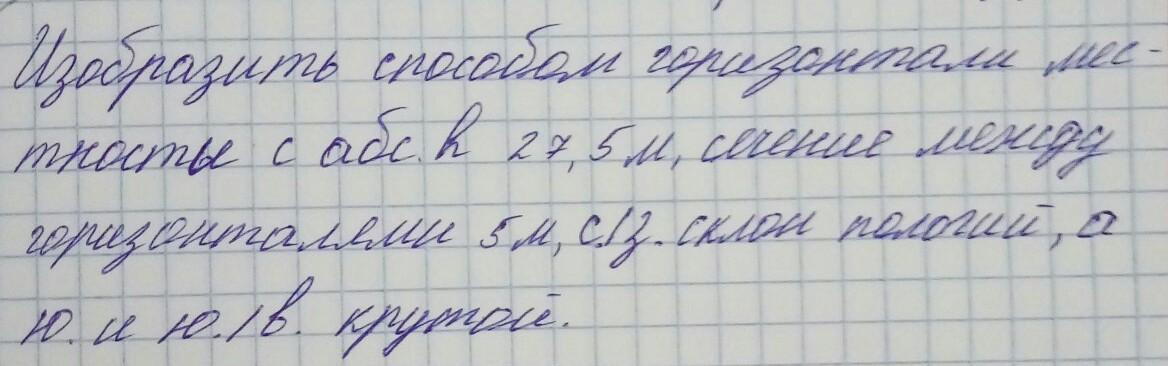 Изобразить способом горизонтали мес-
тность с абс. h 27,5 м, сечение между
горизонталями 5 м, с./з. склон пологий, а
ю. и ю./в. крутой.